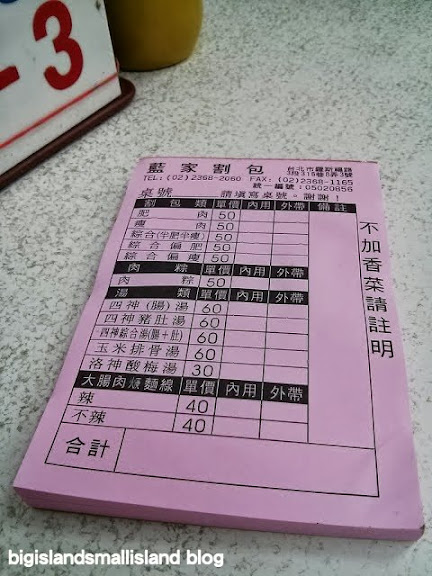 -3
藍家割包
台北市羅斯福路
3段316巷8弄3號
TEL:(02)2368-2060 FAX:(02)2368-1165
統一編號:05020856
桌號 請填寫桌號。謝謝!
割包類 單價 內用 外帶 備註
肥肉 50
瘦肉 50
綜合(半肥半瘦) 50
綜合偏肥 50
綜合偏瘦 50
肉粽 單價 內用 外帶
肉粽 50
湯類 單價 內用 外帶
四神(腸)湯 60
四神豬肚湯 60
四神綜合湯(腸+肚) 60
玉米排骨湯 60
洛神酸梅湯 30
大腸肉焿麵線 單價 內用 外帶
辣 40
不辣 40
合計
不加香菜請註明
bigislandsmallisland blog